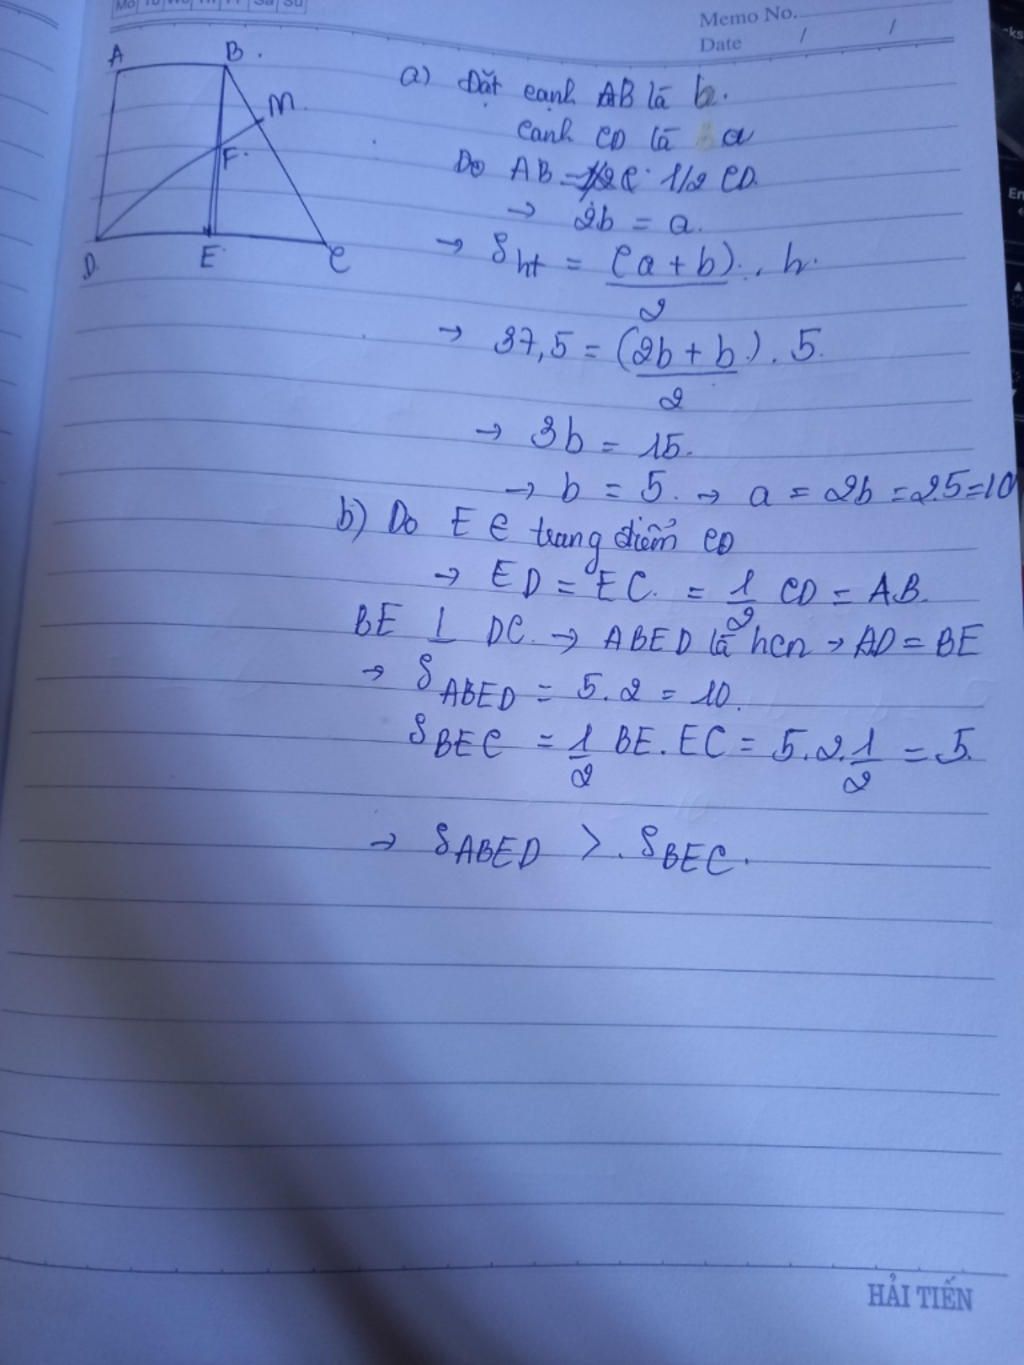 Mo Tu We Th Fr Sa Su
Memo No.
Date / /
A B .
M .
F .
D E . C
a) Đặt cạnh AB là b.
cạnh CD là a
Do AB = 1/2 CD.
→ 2b = a.
→ Sht = (a + b) . h.
2
→ 37,5 = (2b + b) . 5.
2
→ 3b = 15.
→ b = 5. → a = 2b = 2.5 = 10
b) Do E ∈ trung điểm CD
→ ED = EC. = 1/2 CD = AB.
BE ⊥ DC. → ABED là hcn → AD = BE
→ SABED = 5.2 = 10.
SBEC = 1/2 BE. EC = 5.2.1/2 = 5.
→ SABED > . SBEC.
HẢI TIẾN